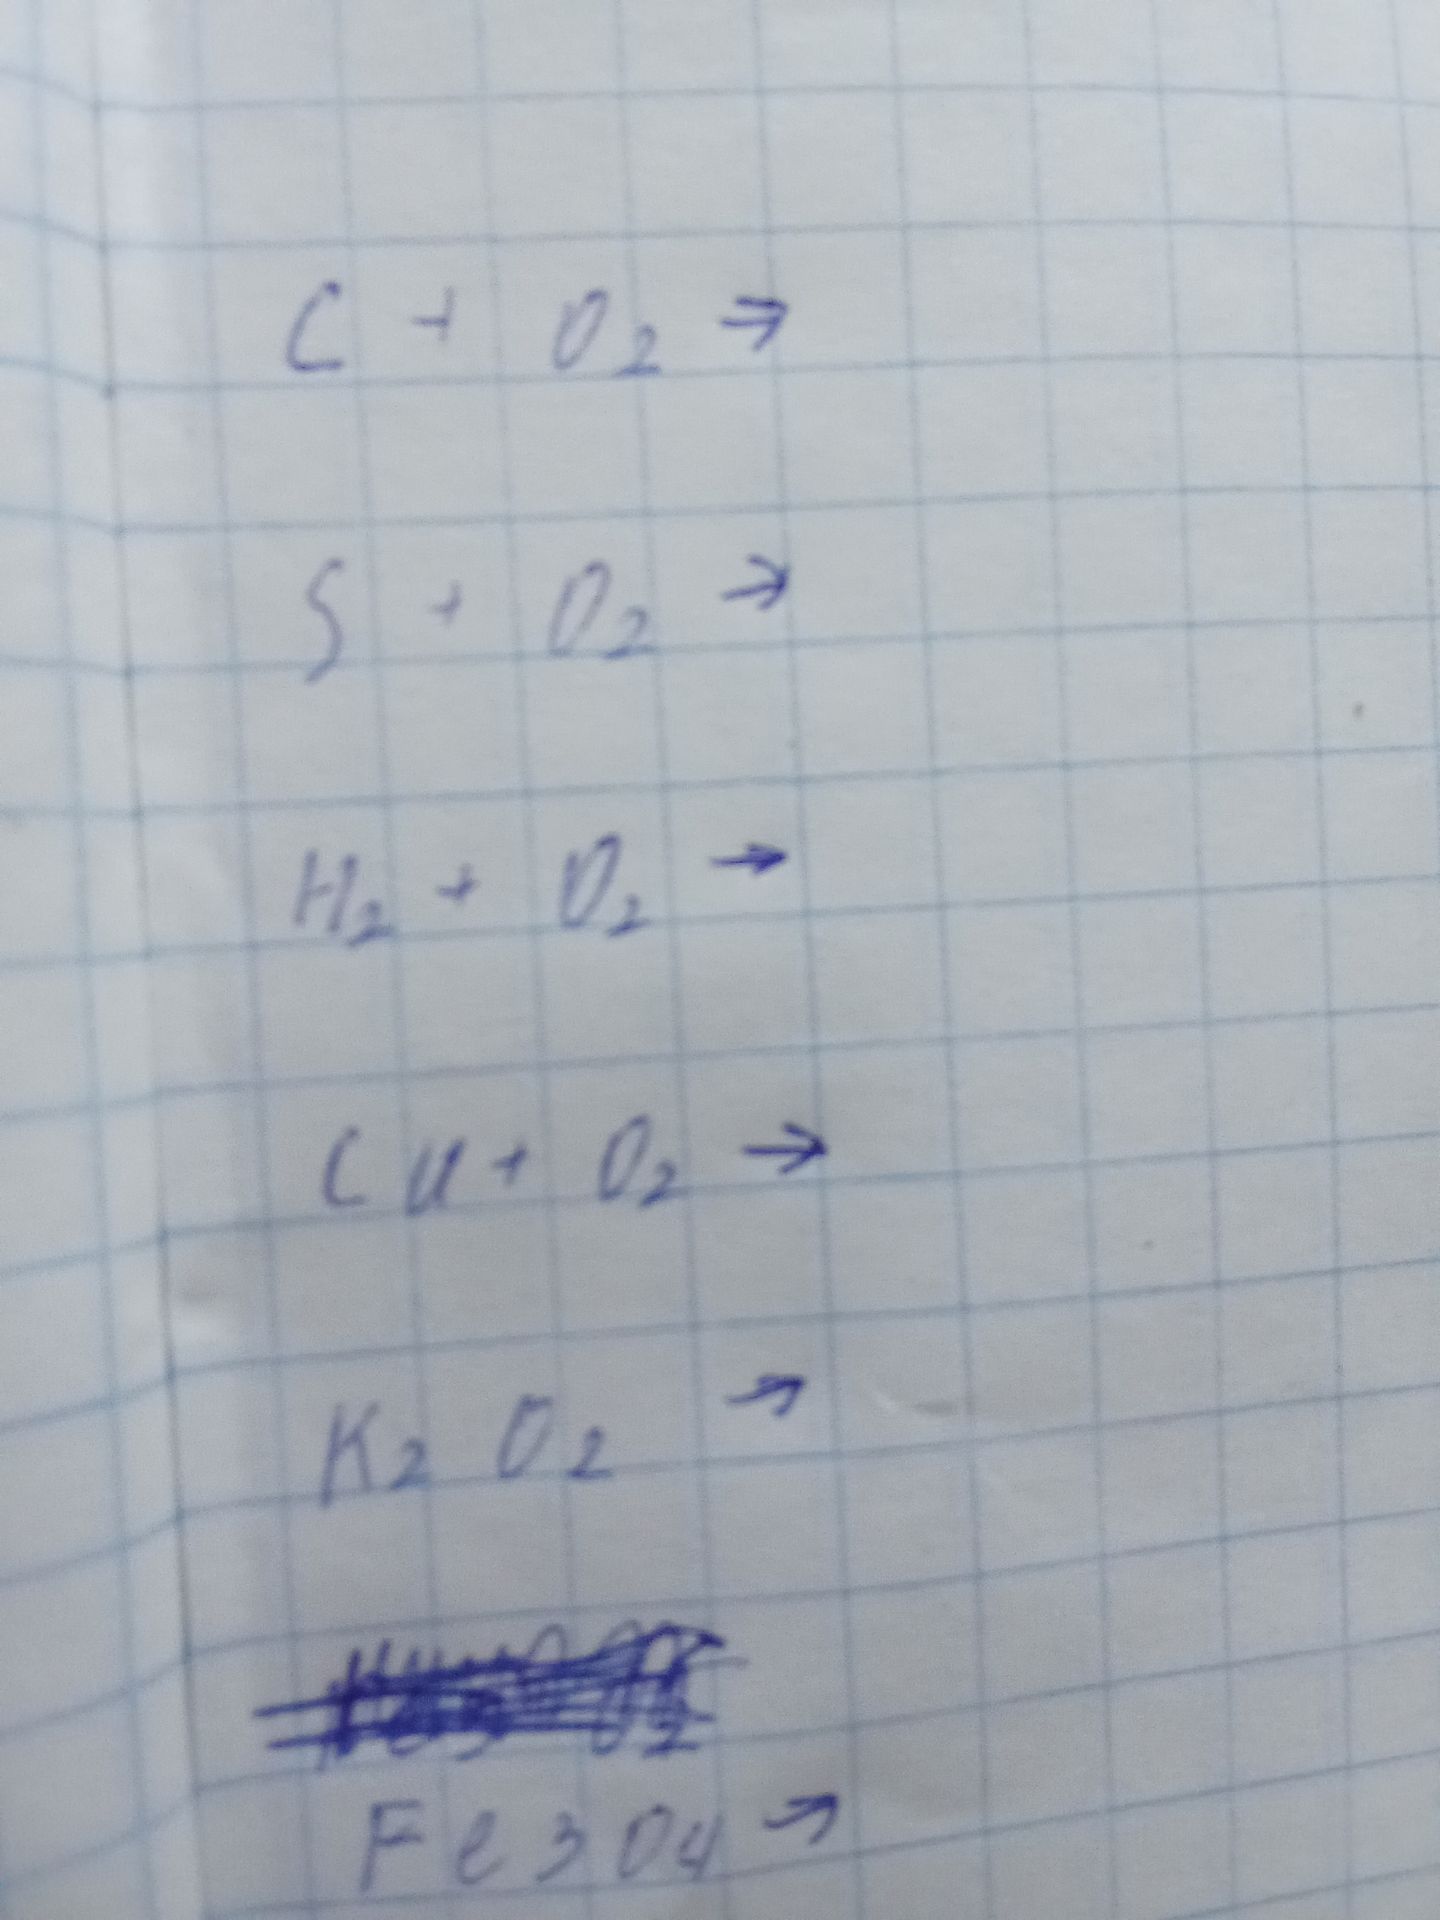 C + O₂ →
S + O₂ →
H₂ + O₂ →
Cu + O₂ →
K₂ O₂ →
Fe3O4 →